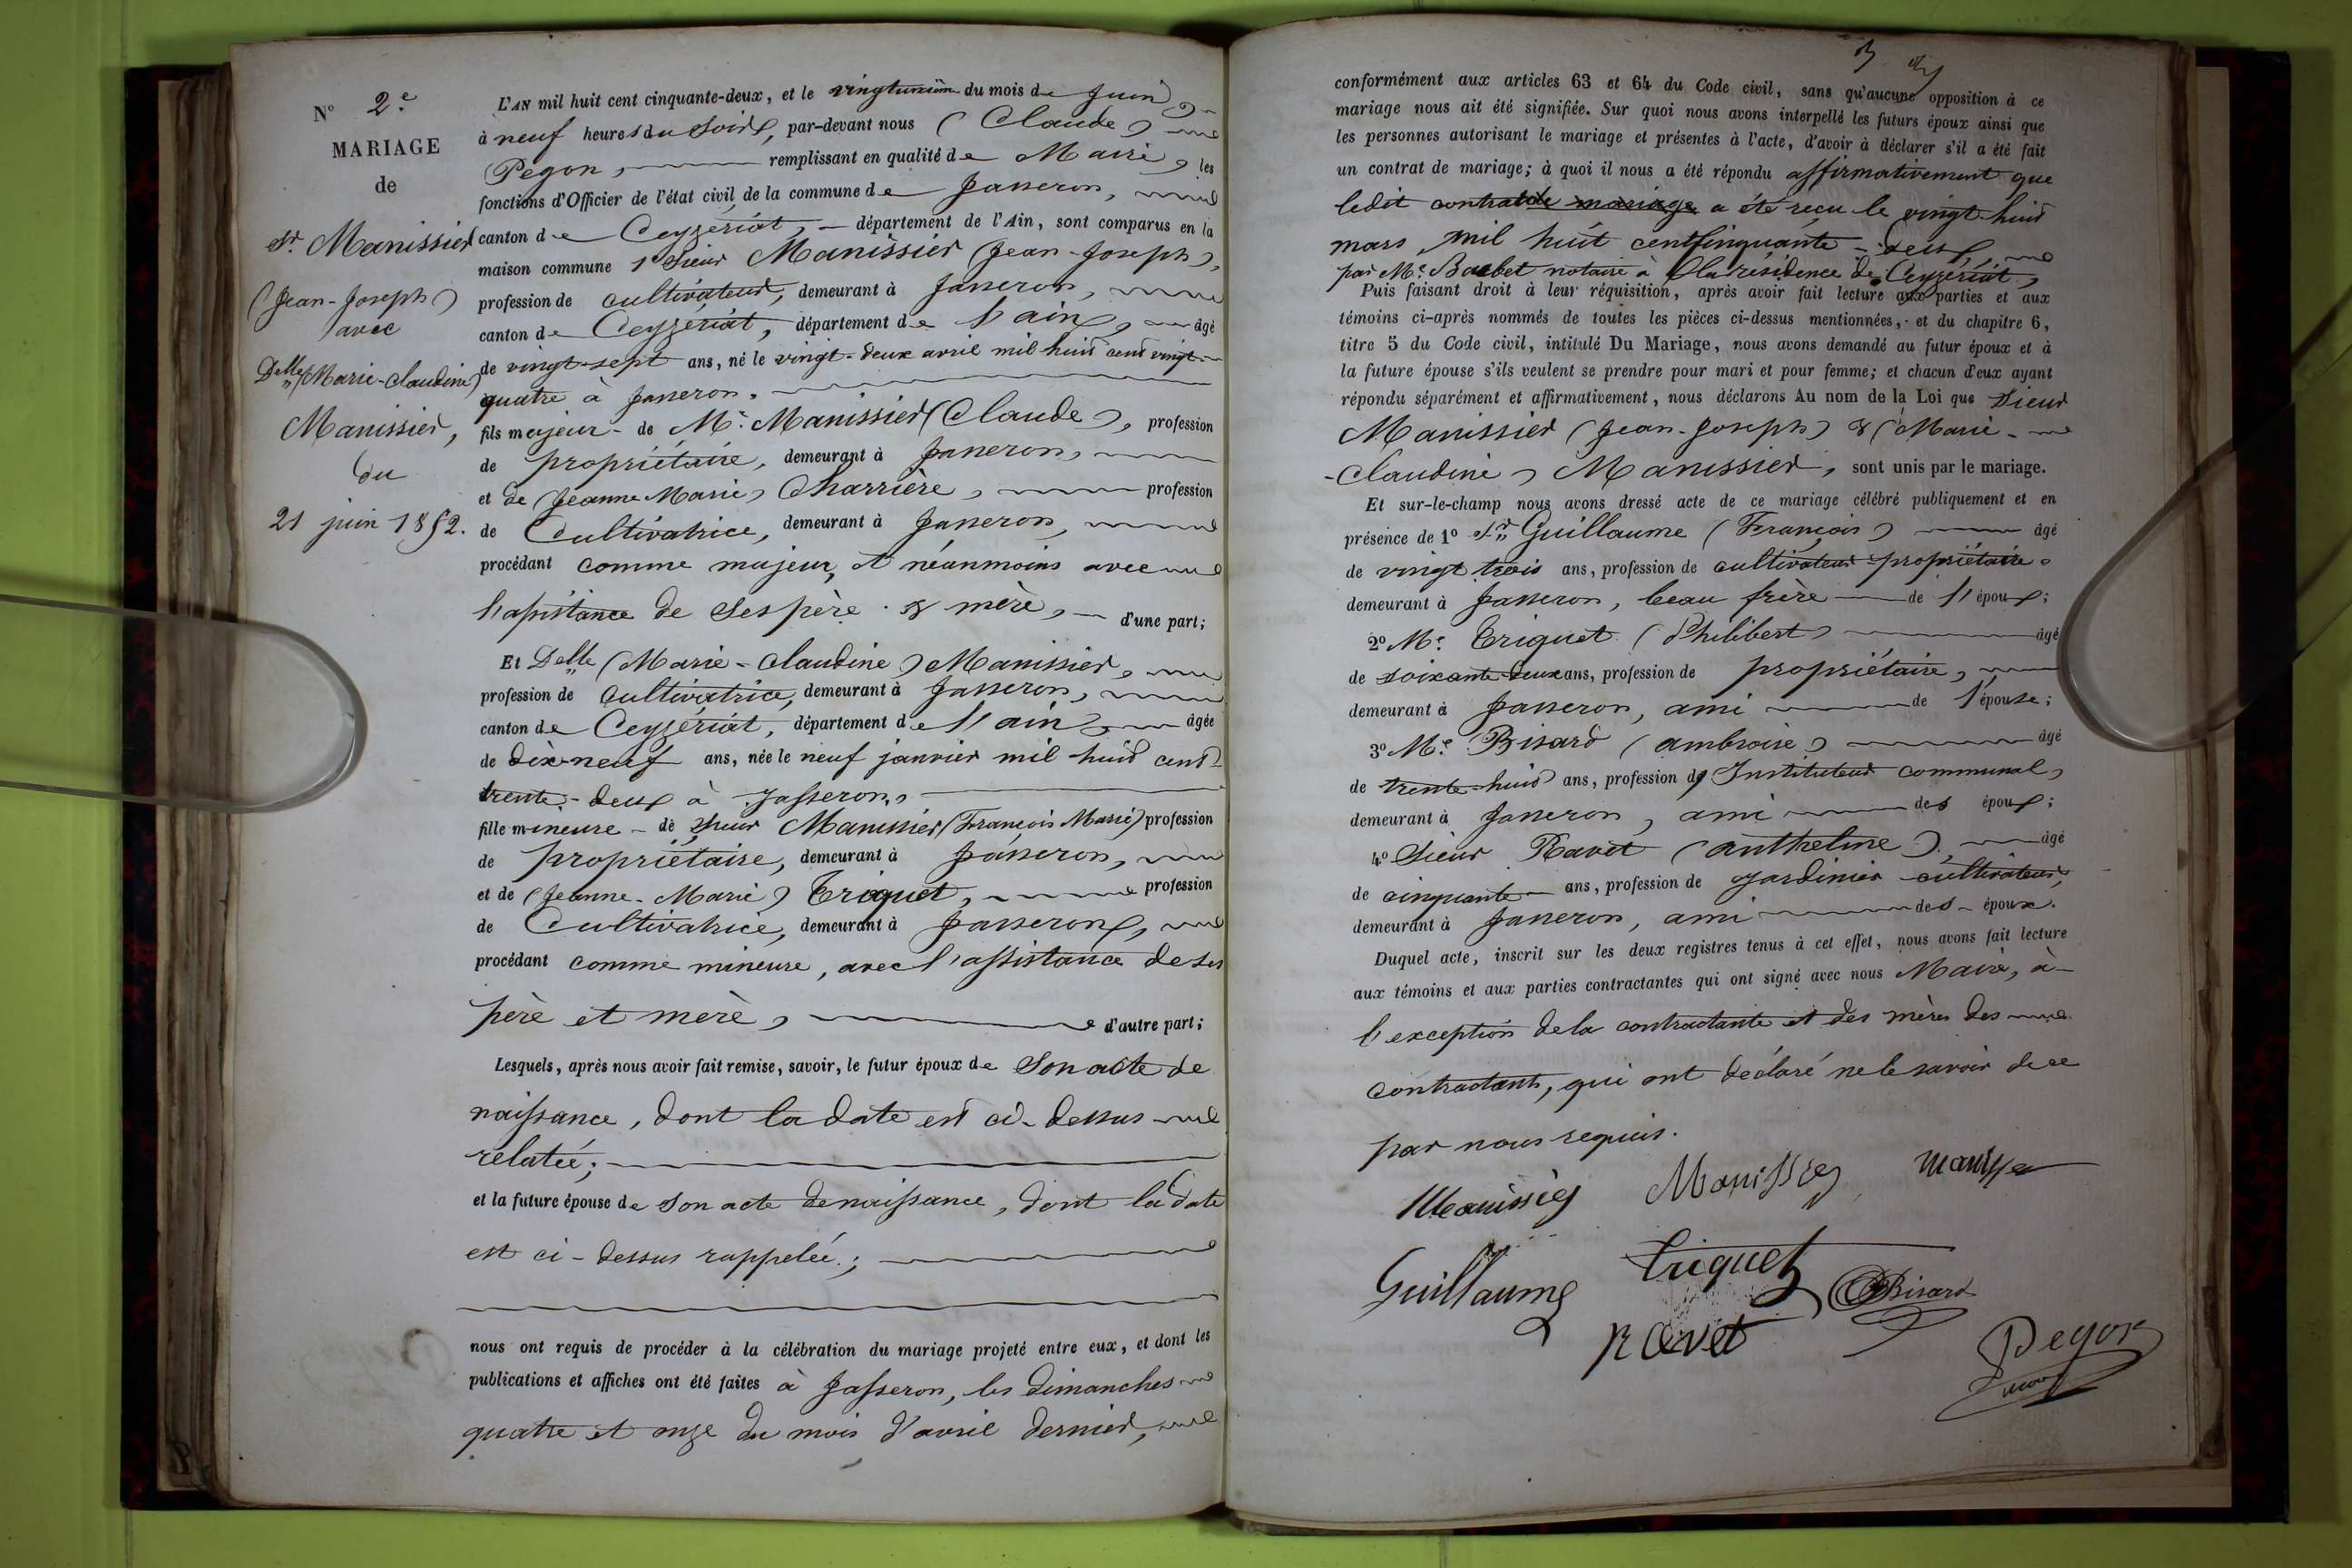 N° 2.e
MARIAGE
de
Sr. Manissier
(Jean-Joseph)
avec
Delle (Marie-Claudine)
Manissier,
du
21 juin 1852.
L'AN mil huit cent cinquante-deux, et le vingtunième du mois de Juin
à neuf heures du Soir, par-devant nous (Claude)
Pegon, remplissant en qualité de Maire, les
fonctions d'Officier de l'état civil de la commune de Jasseron,
canton de Ceyzériat, département de l'Ain, sont comparus en la
maison commune 1° Sieur Manissier (Jean-Joseph),
profession de cultivateur, demeurant à Jasseron,
canton de Ceyzériat, département de l'ain, âgé
de vingt-sept ans, né le vingt-deux avril mil huit cent vingt-
quatre à Jasseron.
fils majeur de Mr. Manissier (Claude), profession
de propriétaire, demeurant à Jasseron,
et de (Jeanne Marie) Charrière, profession
de Cultivatrice, demeurant à Jasseron,
procédant comme majeur, et néanmoins avec
l'assistance de Ses père & mère, d'une part;
Et Delle (Marie-Claudine) Manissier,
profession de cultivatrice, demeurant à Jasseron,
canton de Ceyzériat, département de l'ain, âgée
de dix-neuf ans, née le neuf janvier mil huit cent
trente-deux à Jasseron,
fille mineure de Sieur Manissier (François Marie) profession
de propriétaire, demeurant à Jasseron,
et de (Jeanne-Marie) Triquet, profession
de Cultivatrice, demeurant à Jasseron,
procédant comme mineure, avec l'assistance de ses
père et mère, d'autre part;
Lesquels, après nous avoir fait remise, savoir, le futur époux de Son acte de
naissance, dont la date est ci-dessus
relatée;
et la future épouse de Son acte de naissance, dont la date
est ci-dessus rappelée;
nous ont requis de procéder à la célébration du mariage projeté entre eux, et dont les
publications et affiches ont été faites à Jasseron, les dimanches
quatre et onze du mois d'avril dernier,
3
conformément aux articles 63 et 64 du Code civil, sans qu'aucune opposition à ce
mariage nous ait été signifiée. Sur quoi nous avons interpellé les futurs époux ainsi que
les personnes autorisant le mariage et présentes à l'acte, d'avoir à déclarer s'il a été fait
un contrat de mariage; à quoi il nous a été répondu affirmativement que
ledit contrat de mariage a été reçu le vingt-huit
mars mil huit cent cinquante-deux
par Me. Barbet notaire à la résidence de Ceyzériat,
Puis faisant droit à leur réquisition, après avoir fait lecture aux parties et aux
témoins ci-après nommés de toutes les pièces ci-dessus mentionnées, et du chapitre 6,
titre 5 du Code civil, intitulé Du Mariage, nous avons demandé au futur époux et à
la future épouse s'ils veulent se prendre pour mari et pour femme; et chacun d'eux ayant
répondu séparément et affirmativement, nous déclarons Au nom de la Loi que Sieur
Manissier (Jean-Joseph) & (Marie-
-Claudine) Manissier, sont unis par le mariage.
Et sur-le-champ nous avons dressé acte de ce mariage célébré publiquement et en
présence de 1° Sr Guillaume (François) âgé
de vingt trois ans, profession de cultivateur propriétaire
demeurant à Jasseron, beau frère de l'époux;
2° Mr. Triquet (Philibert) âgé
de soixante-deux ans, profession de propriétaire,
demeurant à Jasseron, ami de l'épouse;
3° Mr. Bisard (ambroise) âgé
de trente-huit ans, profession d'Instituteur communal,
demeurant à Jasseron, ami des époux;
4° Sieur Ravet (anthelme), âgé
de cinquante ans, profession de Jardinier cultivateur,
demeurant à Jasseron, ami des époux.
Duquel acte, inscrit sur les deux registres tenus à cet effet, nous avons fait lecture
aux témoins et aux parties contractantes qui ont signé avec nous Maire, à
l'exception de la contractante et des mères des
contractants, qui ont déclaré ne le savoir de ce
par nous requis.
Manissier Manissier Manissier
Guillaume Triquet Bisard
Ravet Pegon